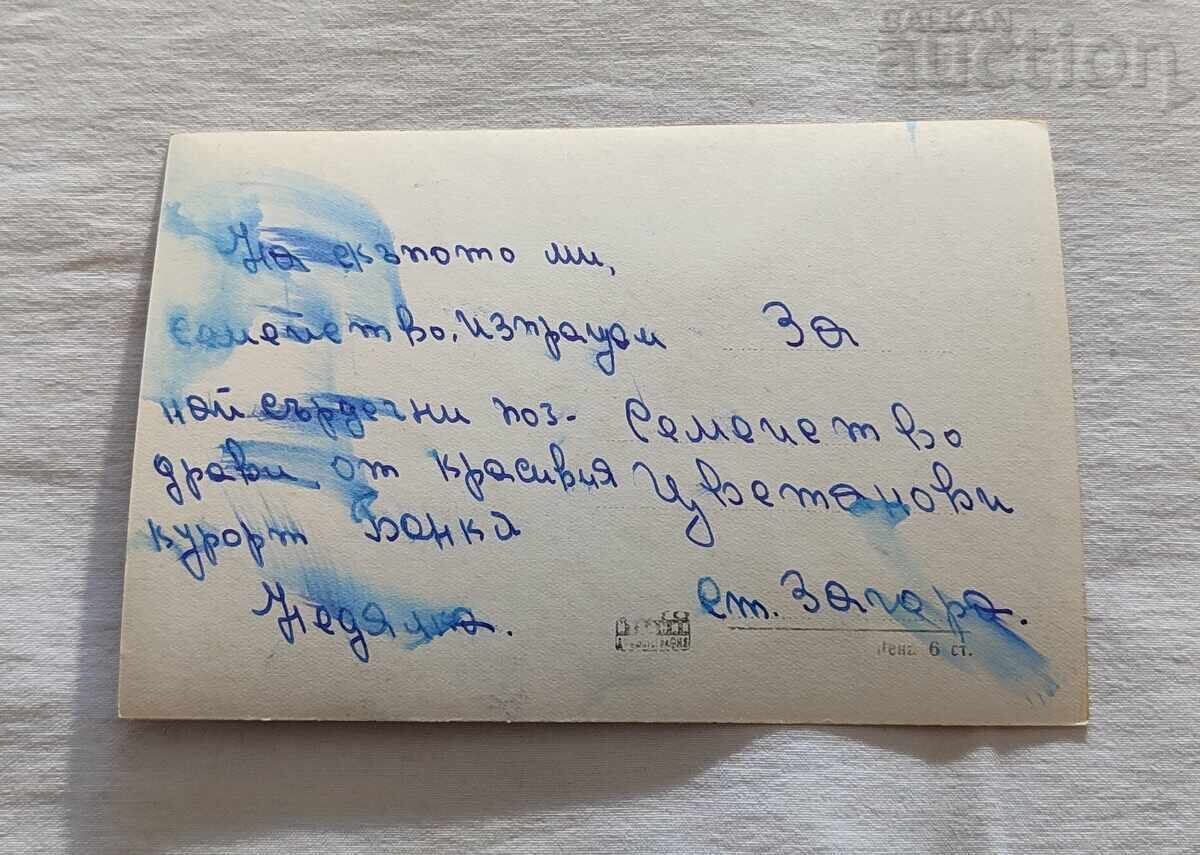 BALKAN
auction
На скъпото ми,
семейство, изпращам
най сърдечни поз-
драви, от красивия
курорт Банкя
Недялка.
За
Семейство
Цветанови
ст. Загора.
Цена 6 ст.